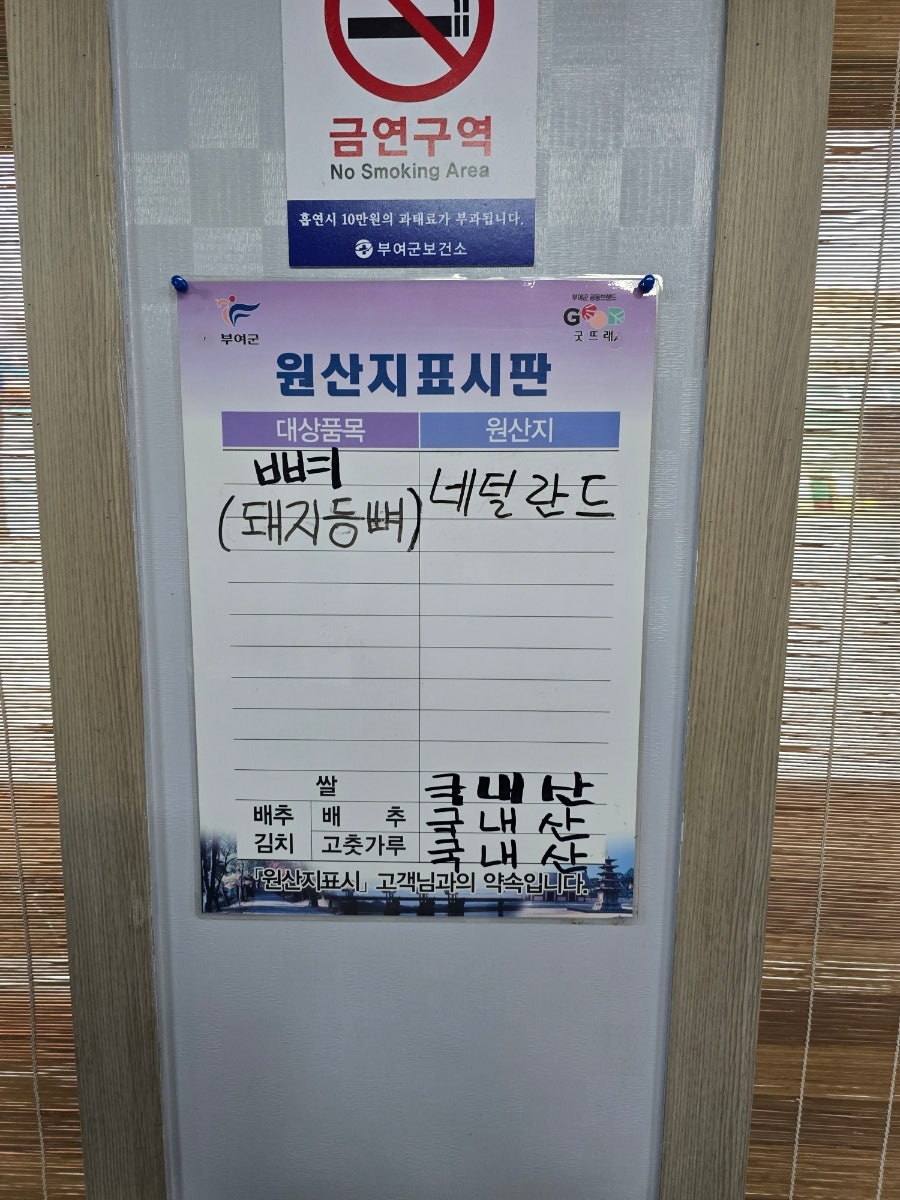 금연구역
No Smoking Area
흡연시 10만원의 과태료가 부과됩니다.
부여군보건소
부여군
부여군 공동브랜드
GOOD
굿뜨래
원산지표시판
대상품목 원산지
뼈
(돼지등뼈) 네덜란드
쌀 국내산
배추김치 배추 국내산
고춧가루 국내산
「원산지표시」 고객님과의 약속입니다.